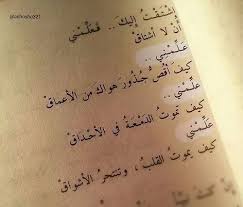 اشْتَقْتُ إليكَ .. فعلِّمْني
أنْ لا أشتاقْ
علِّمْني ..
كيفَ أقُصُّ جُذُورَ هواكَ من الأعماقْ
علِّمْني ..
كيفَ تموتُ الدمْعَةُ في الأحداقْ
علِّمْني ..
كيفَ يموتُ القلبُ ، وتنتحرُ الأشواقْ